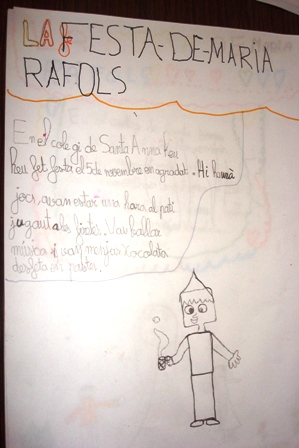 LA FESTA-DE-MARIA
RAFOLS
En el colegi de Santa Anna heu
heu fet festa el 5 de novembre en agradat. Hi havià
joci, avan estar una hora al pati
jugant a les fixtes. Vau ballar
música i van menjar xocolata
desfeta en